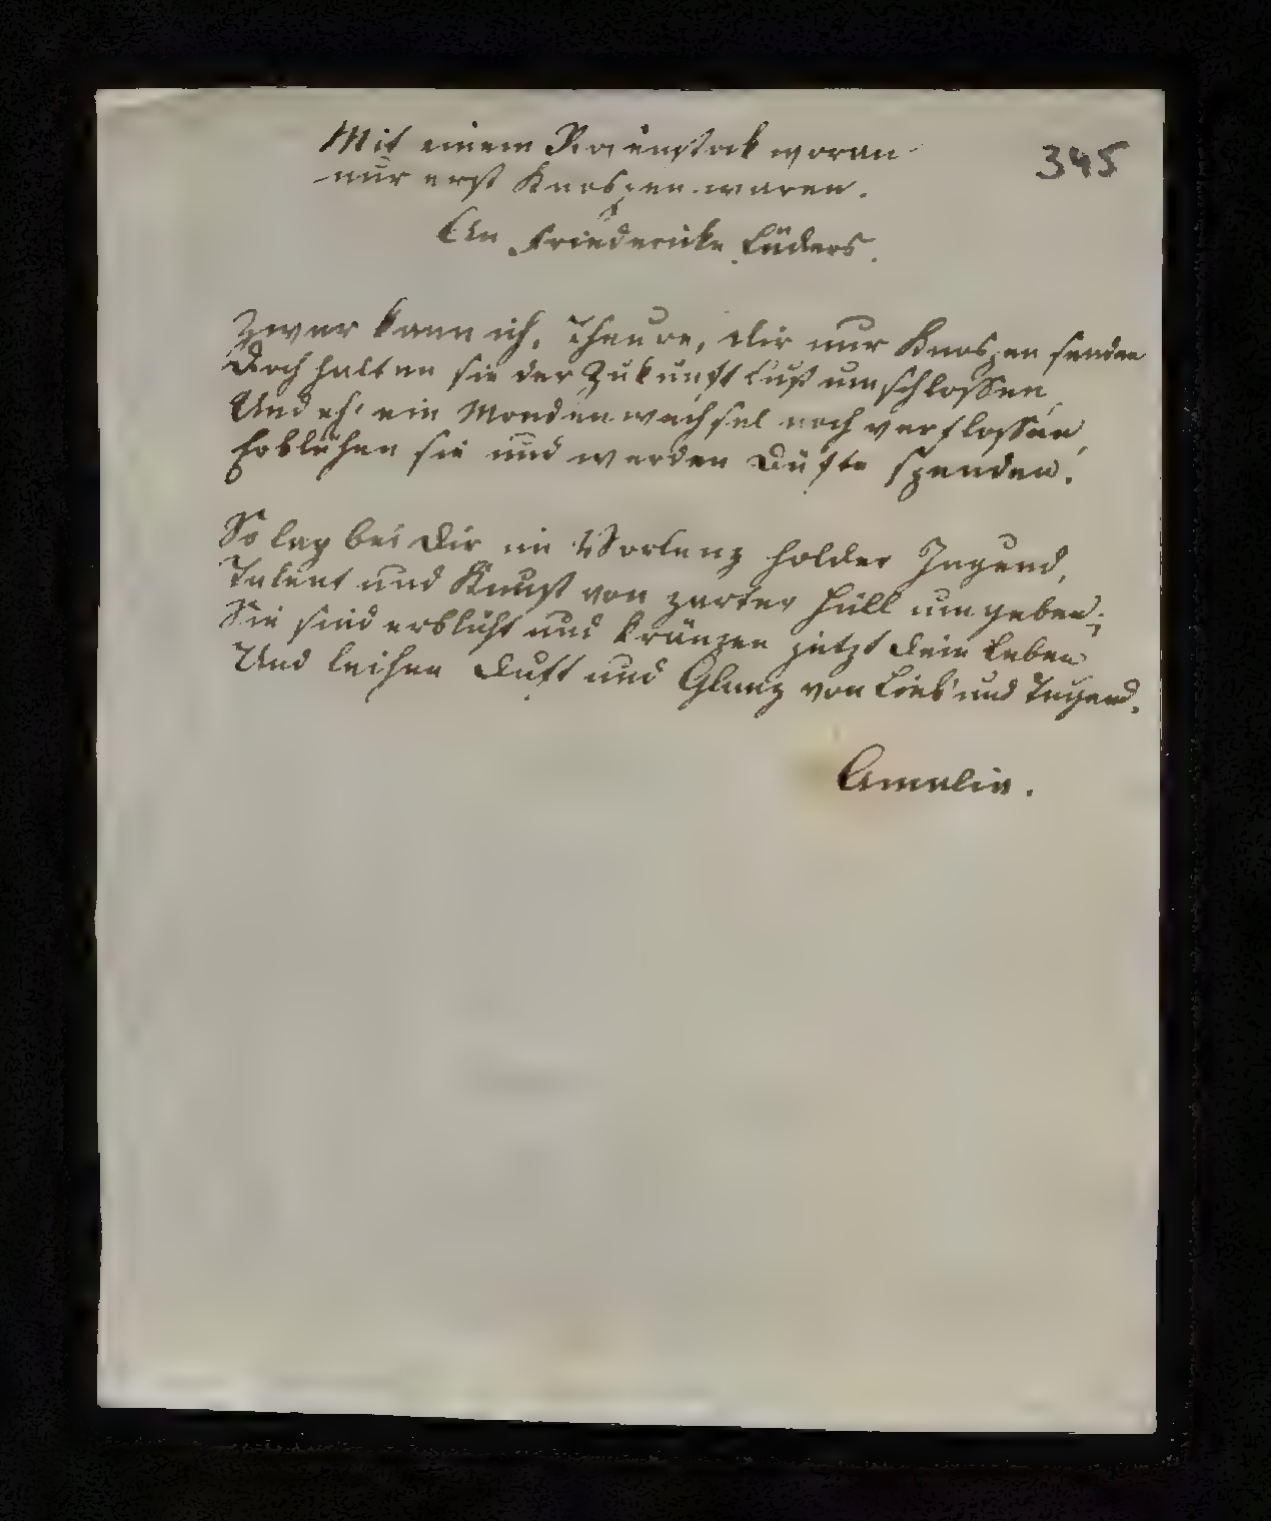 Mit einem Rosenstock woran
nur erst Knospen waren.
345
An Friedericke Lüders.
Zwar kann ich, Theure, dir nur Knospen senden
Doch halten sie der Zukunft Lust umschlossen,
Und eh' ein Mondenwechsel noch verflossen,
Erblühen sie und werden Düfte spenden.
So lag bei Dir im Vorlenz holder Jugend,
Talent und Kunst von zarter Hüll umgeben;
Sie sind erblüht und kränzen jetzt dein Leben
Und leihen Duft und Glanz von Lieb' und Tugend.
Amalie.